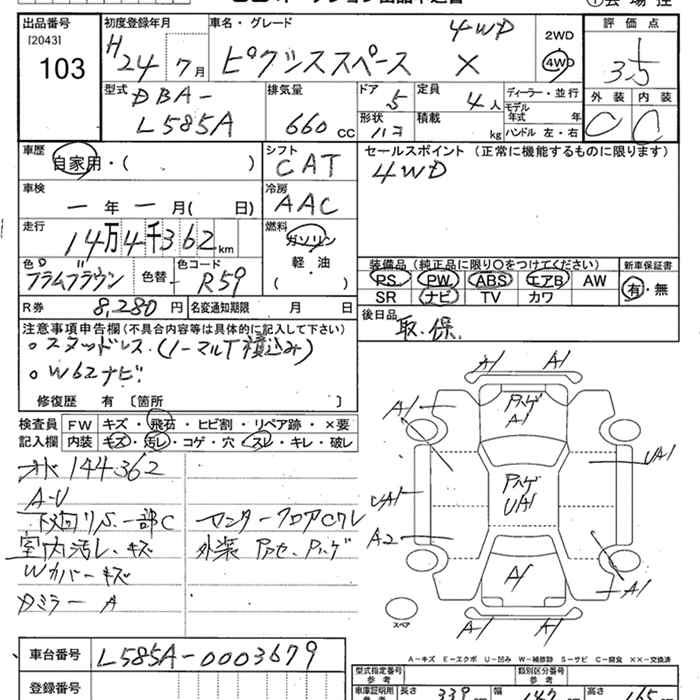 出品番号 初度登録年月 車名・グレード 4WD 2WD 評価点
[2043] H24年7月 ピクシススペース X 4WD 3.5
103
型式 DBA- 排気量 ドア 5 定員 4人 ディーラー・並行 外装 内装
L585A 660cc 形状 ハコ 積載 kg モデル年式 年 C C
ハンドル 左・右
車歴 自家用・( ) シフト CAT セールスポイント (正常に機能するものに限ります)
4WD
車検 ー年ー月( 日) 冷房 AAC
走行 14万4千362km 燃料 ガソリン
軽・油
( )
色 プラムブラウン 色替 カラーコード R59
装備品 (純正品に限り○をつけてください) 新車保証書
PS PW ABS エアB AW 有・無
SR ナビ TV カワ
R券 8,280円 名変通知期限 月 日
後日品 取.保.
注意事項申告欄(不具合内容等は具体的に記入して下さい)
○スタッドレス.(ノーマルT積込み)
○W62ナビ
修復歴 有 〔箇所 〕
検査員 FW キズ・飛石・ヒビ割・リペア跡・×要
記入欄 内装 キズ・汚レ・コゲ・穴・スレ・キレ・破レ
144362
A-U
下廻りS.一部C センターフロアCクレ
室内汚レ、キズ
Wカバーキズ
Dミラー A
A1 A1
A1
A1
UA1
UA1
UA1
A2
A1
A1
A1 A1
スペア
A-キズ E-エクボ U-凹み W-補修跡 S-サビ C-腐食 ××-交換済
車台番号 L585A-0003679
登録番号
型式指定番号 参考 類別区分番号 参考
車庫証明用 長さ 339cm 幅 147 高さ 165cm